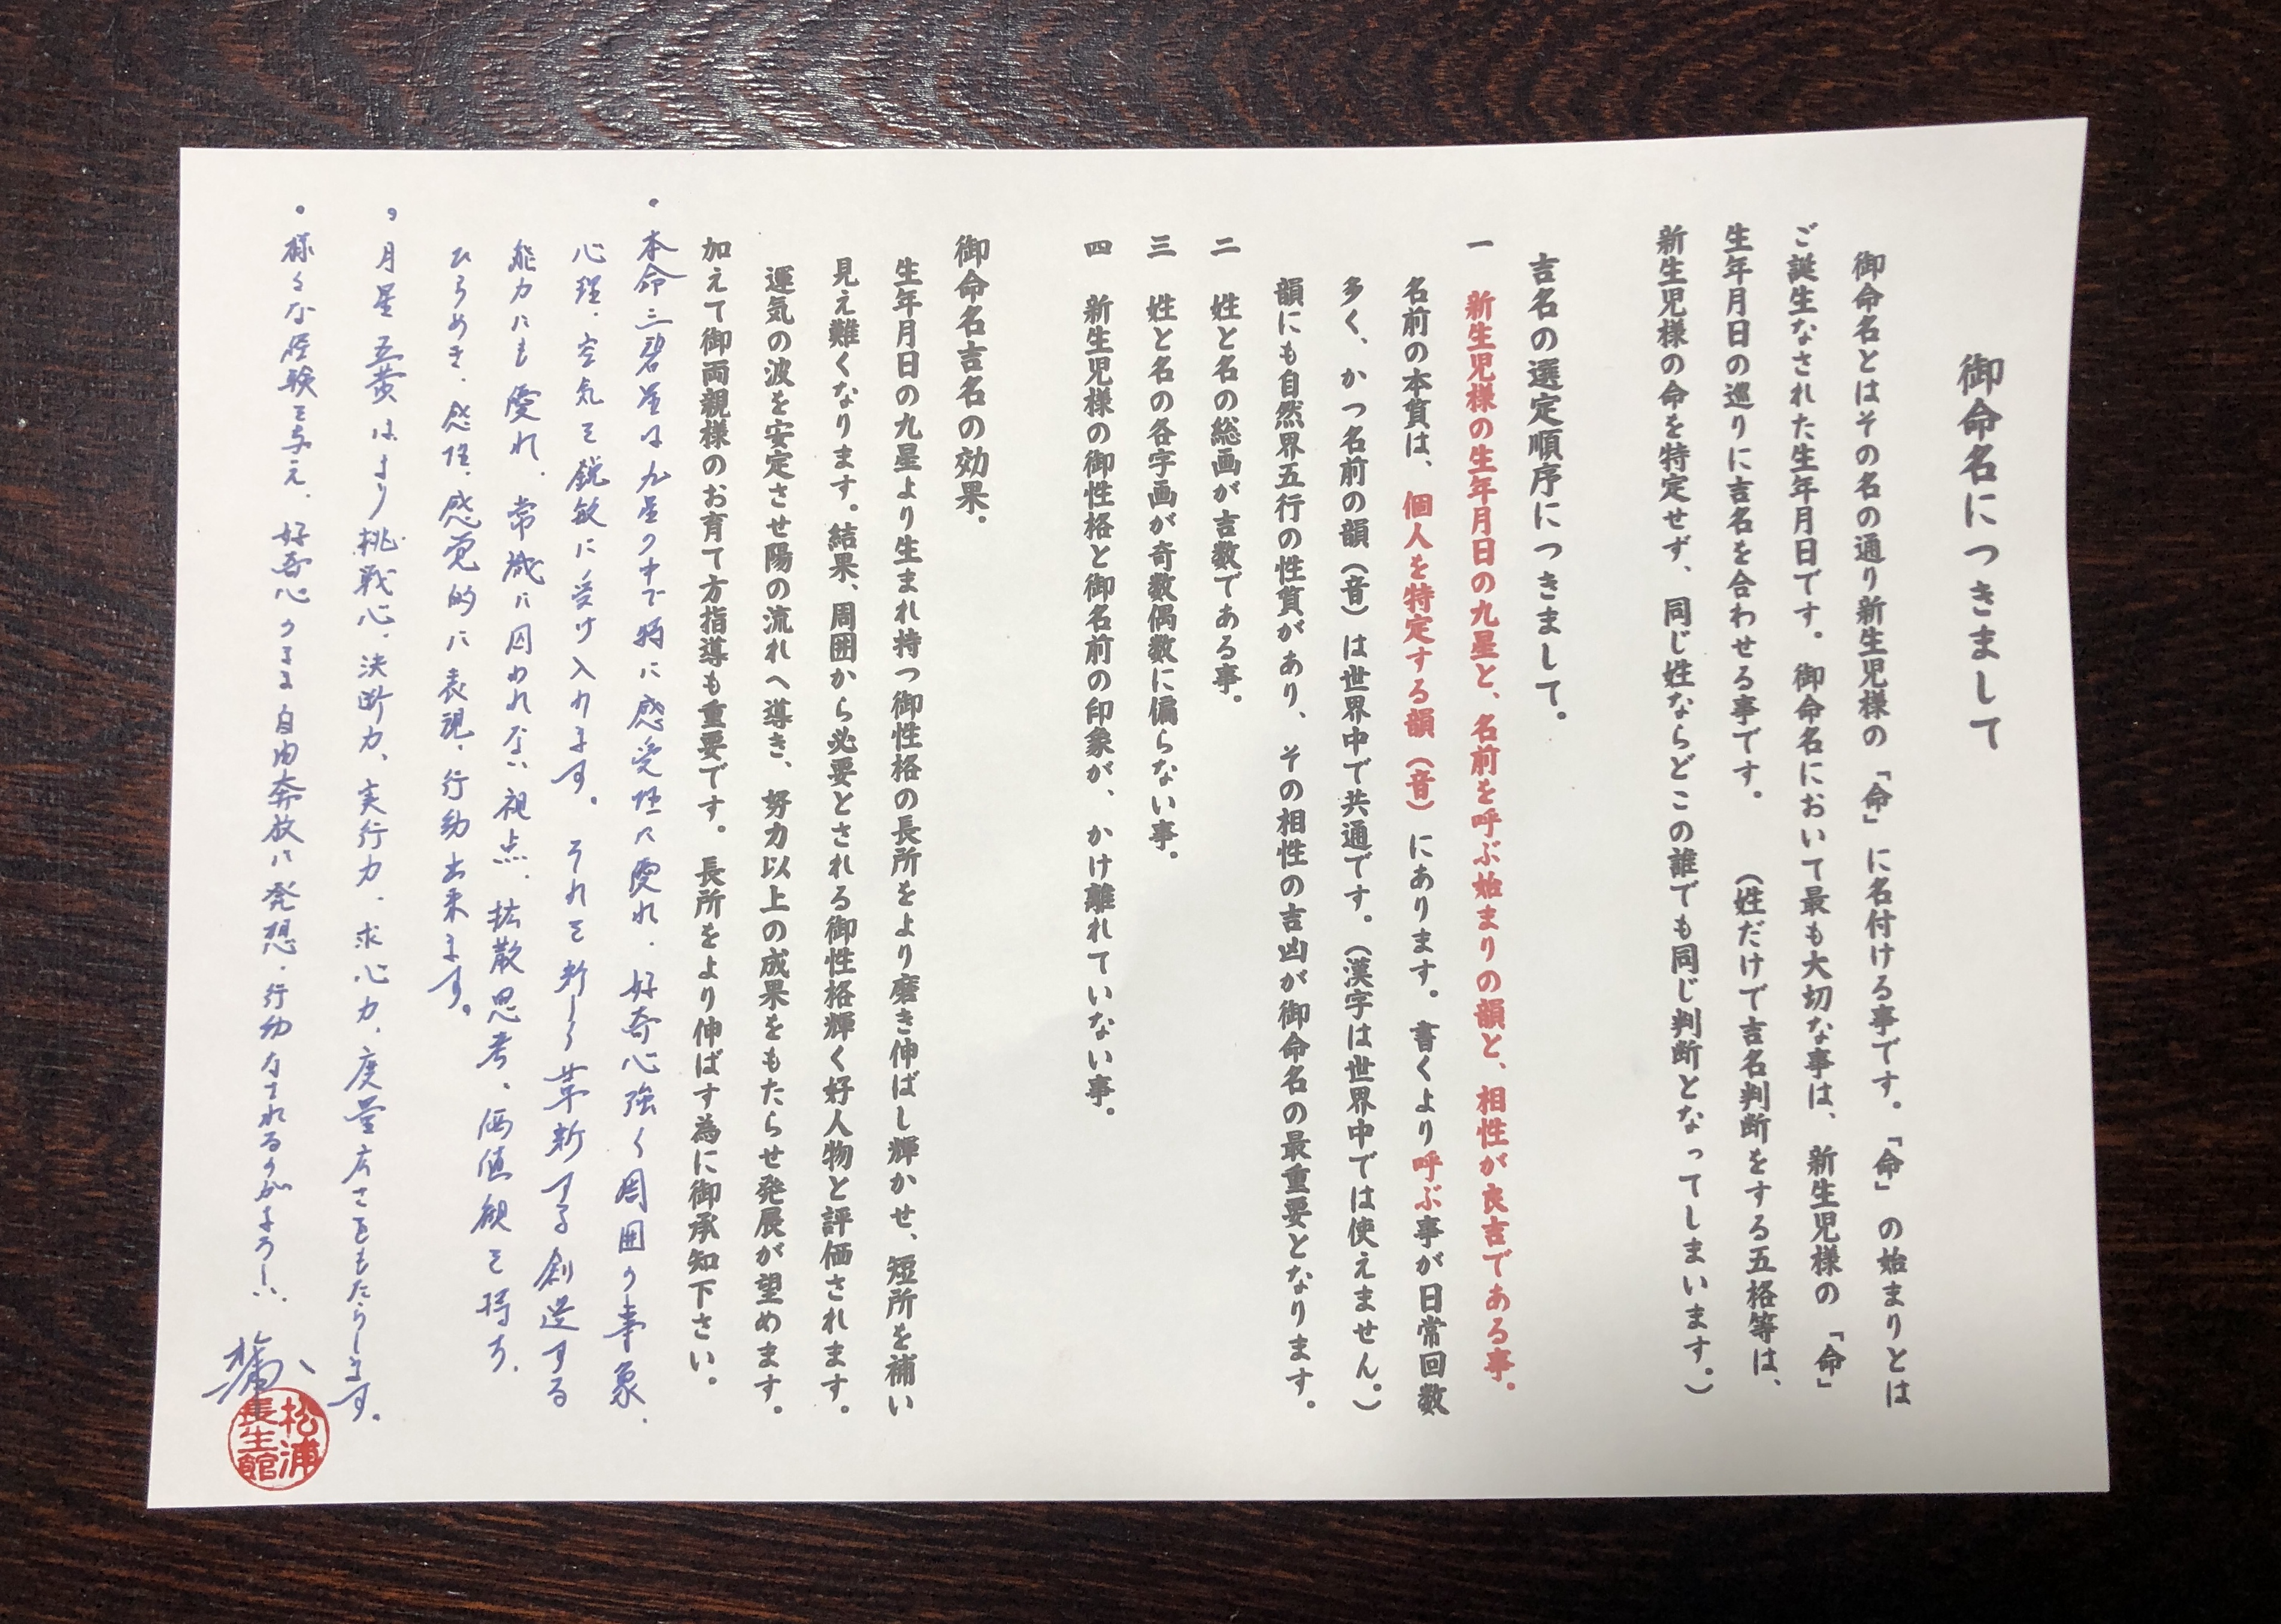 御命名につきまして
御命名とはその名の通り新生児様の「命」に名付ける事です。「命」の始まりとは
ご誕生なされた生年月日です。御命名において最も大切な事は、新生児様の「命」
生年月日の巡りに吉名を合わせる事です。　（姓だけで吉名判断をする五格等は、
新生児様の命を特定せず、同じ姓ならどこの誰でも同じ判断となってしまいます。）
吉名の選定順序につきまして。
一　新生児様の生年月日の九星と、名前を呼ぶ始まりの韻と、相性が良吉である事。
名前の本質は、個人を特定する韻（音）にあります。書くより呼ぶ事が日常回数
多く、かつ名前の韻（音）は世界中で共通です。（漢字は世界中では使えません。）
韻にも自然界五行の性質があり、その相性の吉凶が御命名の最重要となります。
二　姓と名の総画が吉数である事。
三　姓と名の各字画が奇数偶数に偏らない事。
四　新生児様の御性格と御名前の印象が、かけ離れていない事。
御命名吉名の効果。
生年月日の九星より生まれ持つ御性格の長所をより磨き伸ばし輝かせ、短所を補い
見え難くなります。結果、周囲から必要とされる御性格輝く好人物と評価されます。
運気の波を安定させ陽の流れへ導き、努力以上の成果をもたらせ発展が望めます。
加えて御両親様のお育て方指導も重要です。長所をより伸ばす為に御承知下さい。
・本命三碧星は九星の中で特に感受性に優れ、好奇心強く周囲の事象、
心理、空気を鋭敏に受け入れます。それを新しく革新する創造する
能力にも優れ、常識に囚われない視点、拡散思考、価値観を持ち、
ひらめき、感性、感覚的に表現、行動出来ます。
・月星五黄はより挑戦心、決断力、実行力、求心力、度量広さをもたらします。
・様々な経験を与え、好奇心のまま自由奔放に発想、行動なされるのがよろしい。
松浦
松浦
長生館